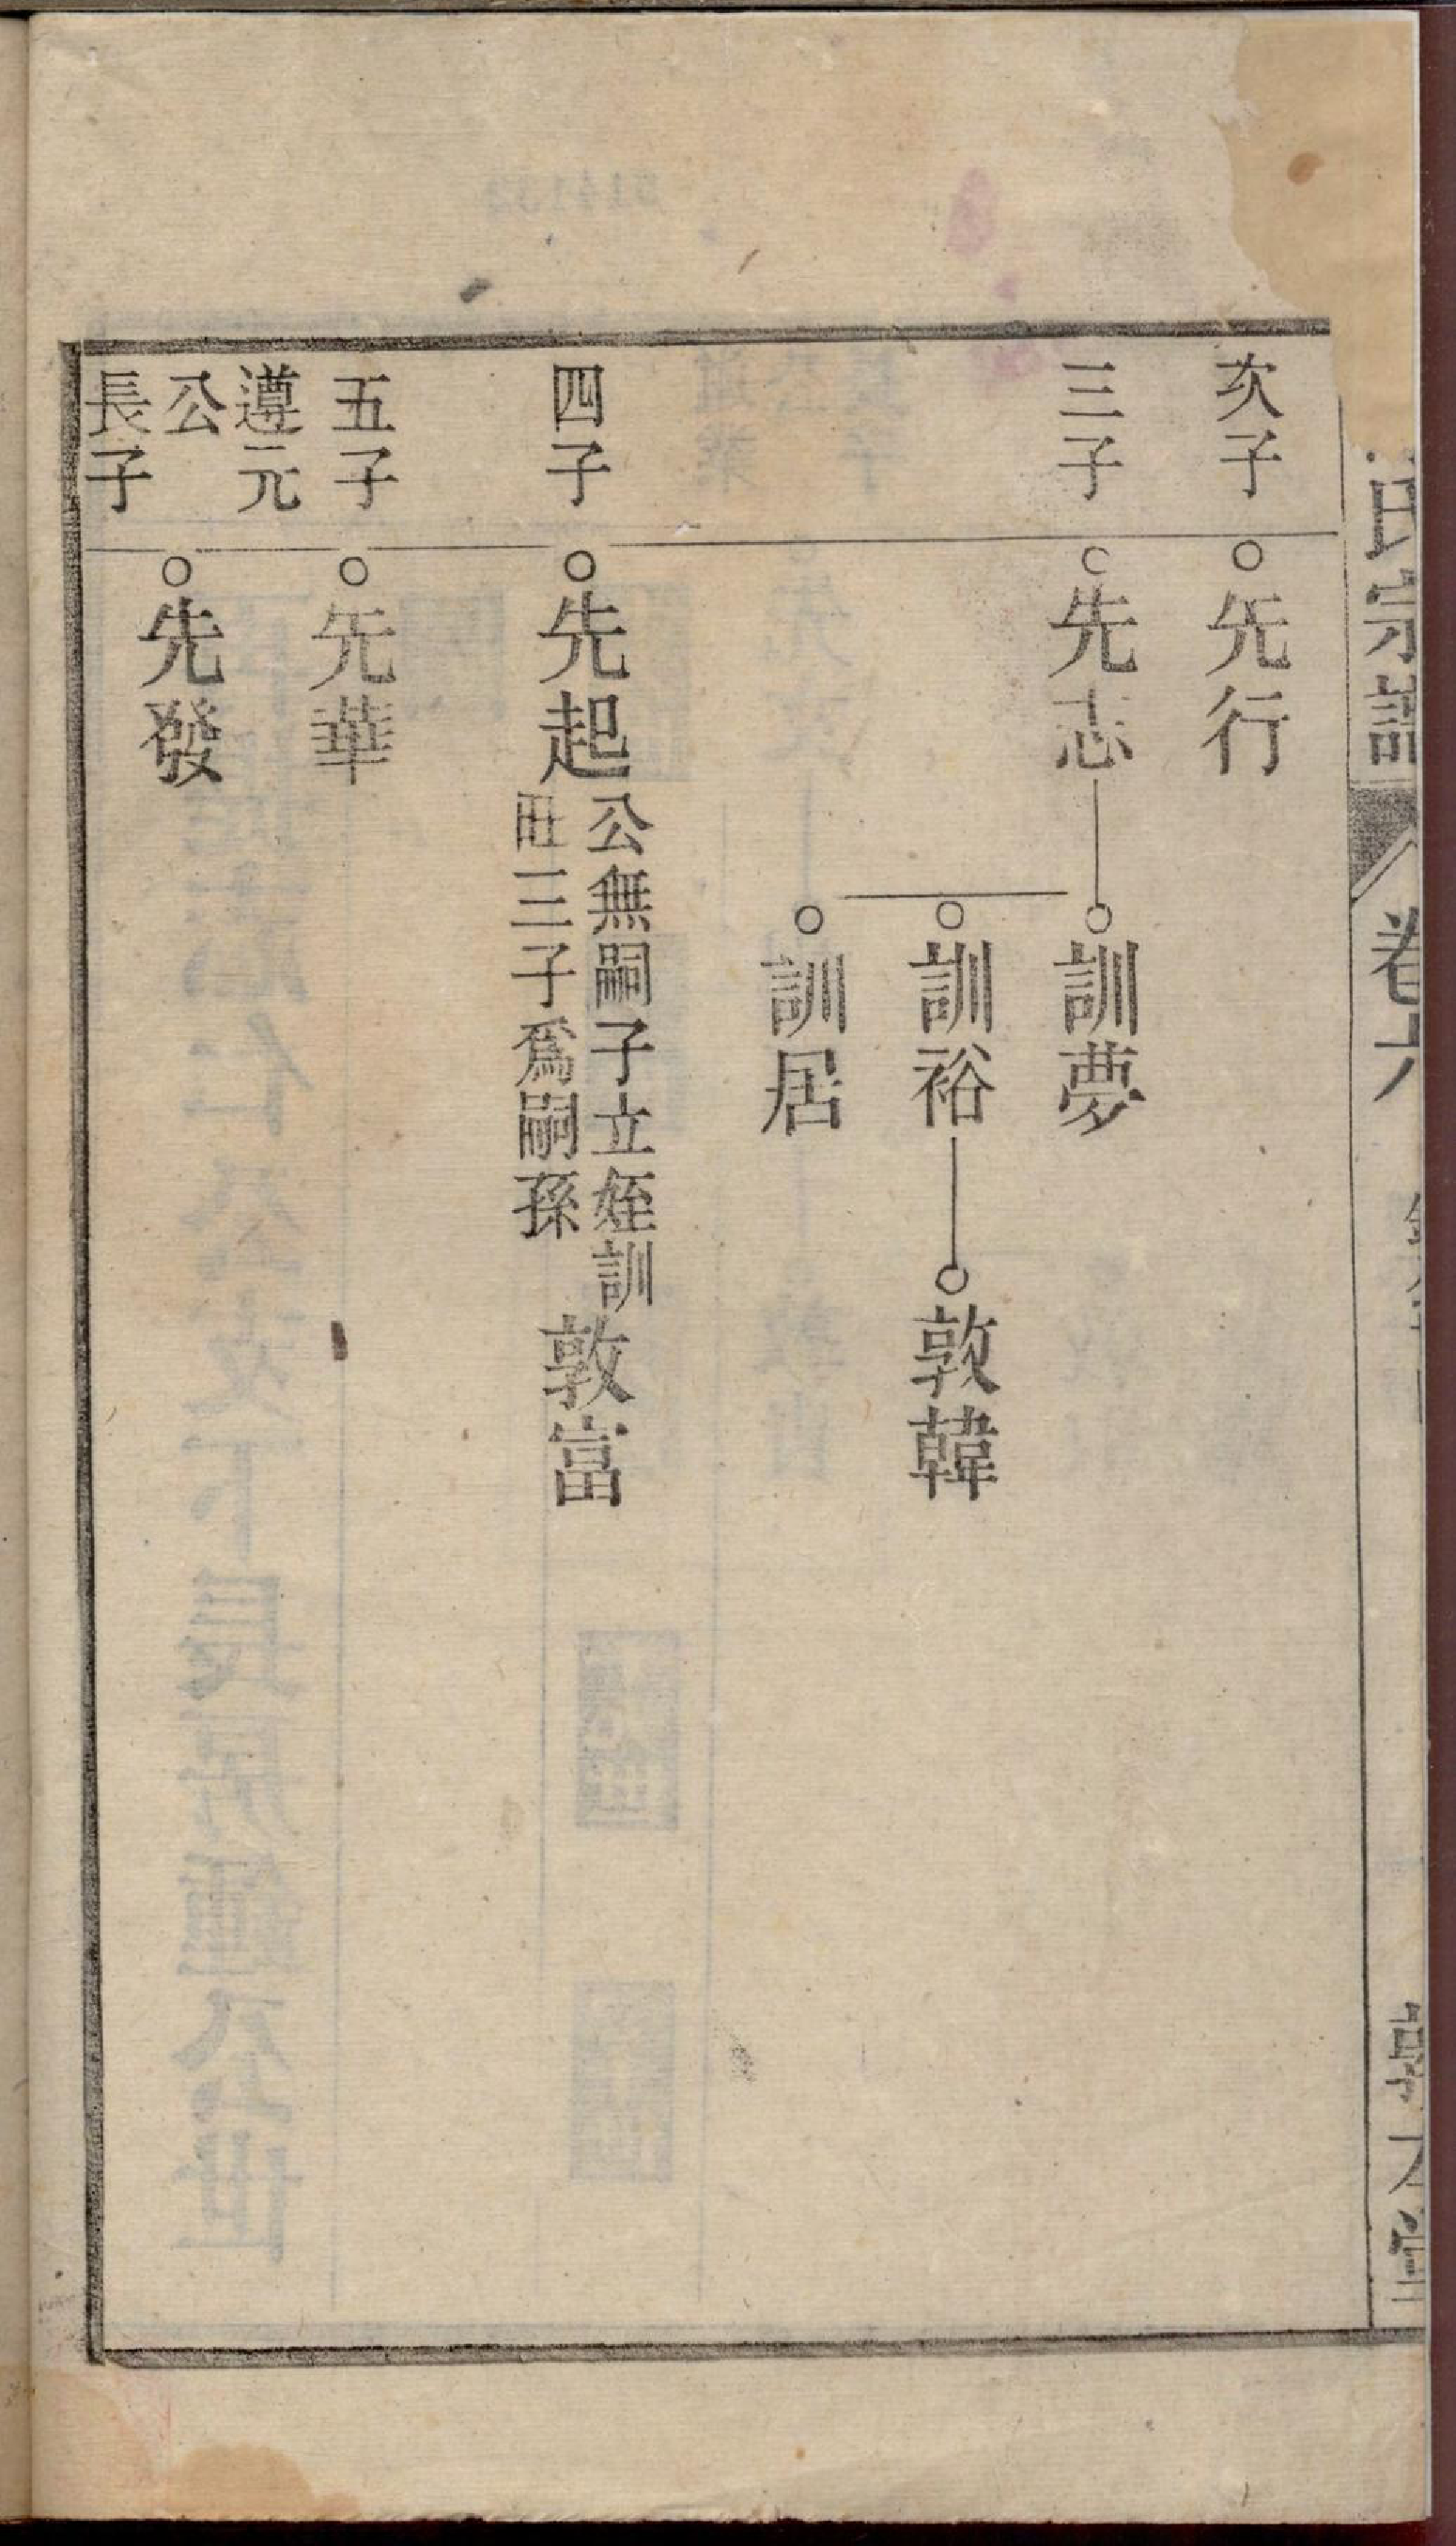 氏宗譜
卷六
堂
次子
先行
三子
先志
訓夢
訓裕
敦韓
訓居
四子
先起
公無嗣子立姪訓
旺三子爲嗣孫
敦富
五子
先華
遵元
公
長子
先發